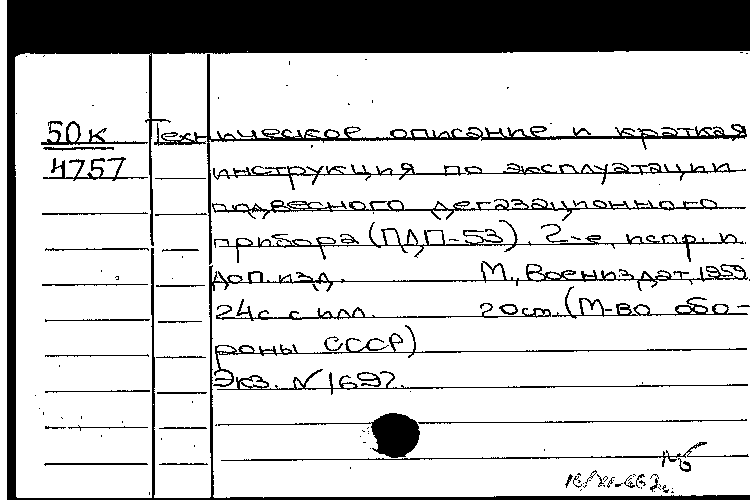 50к Техническое описание и краткая
4757 инструкция по эксплуатации
подвесного дегазационного
прибора (ПДП-53). 2-е, испр. и
доп. изд. М., Воениздат, 1959
24с с илл. 20см. (М-во обо-
роны СССР)
Экз. № 1697.